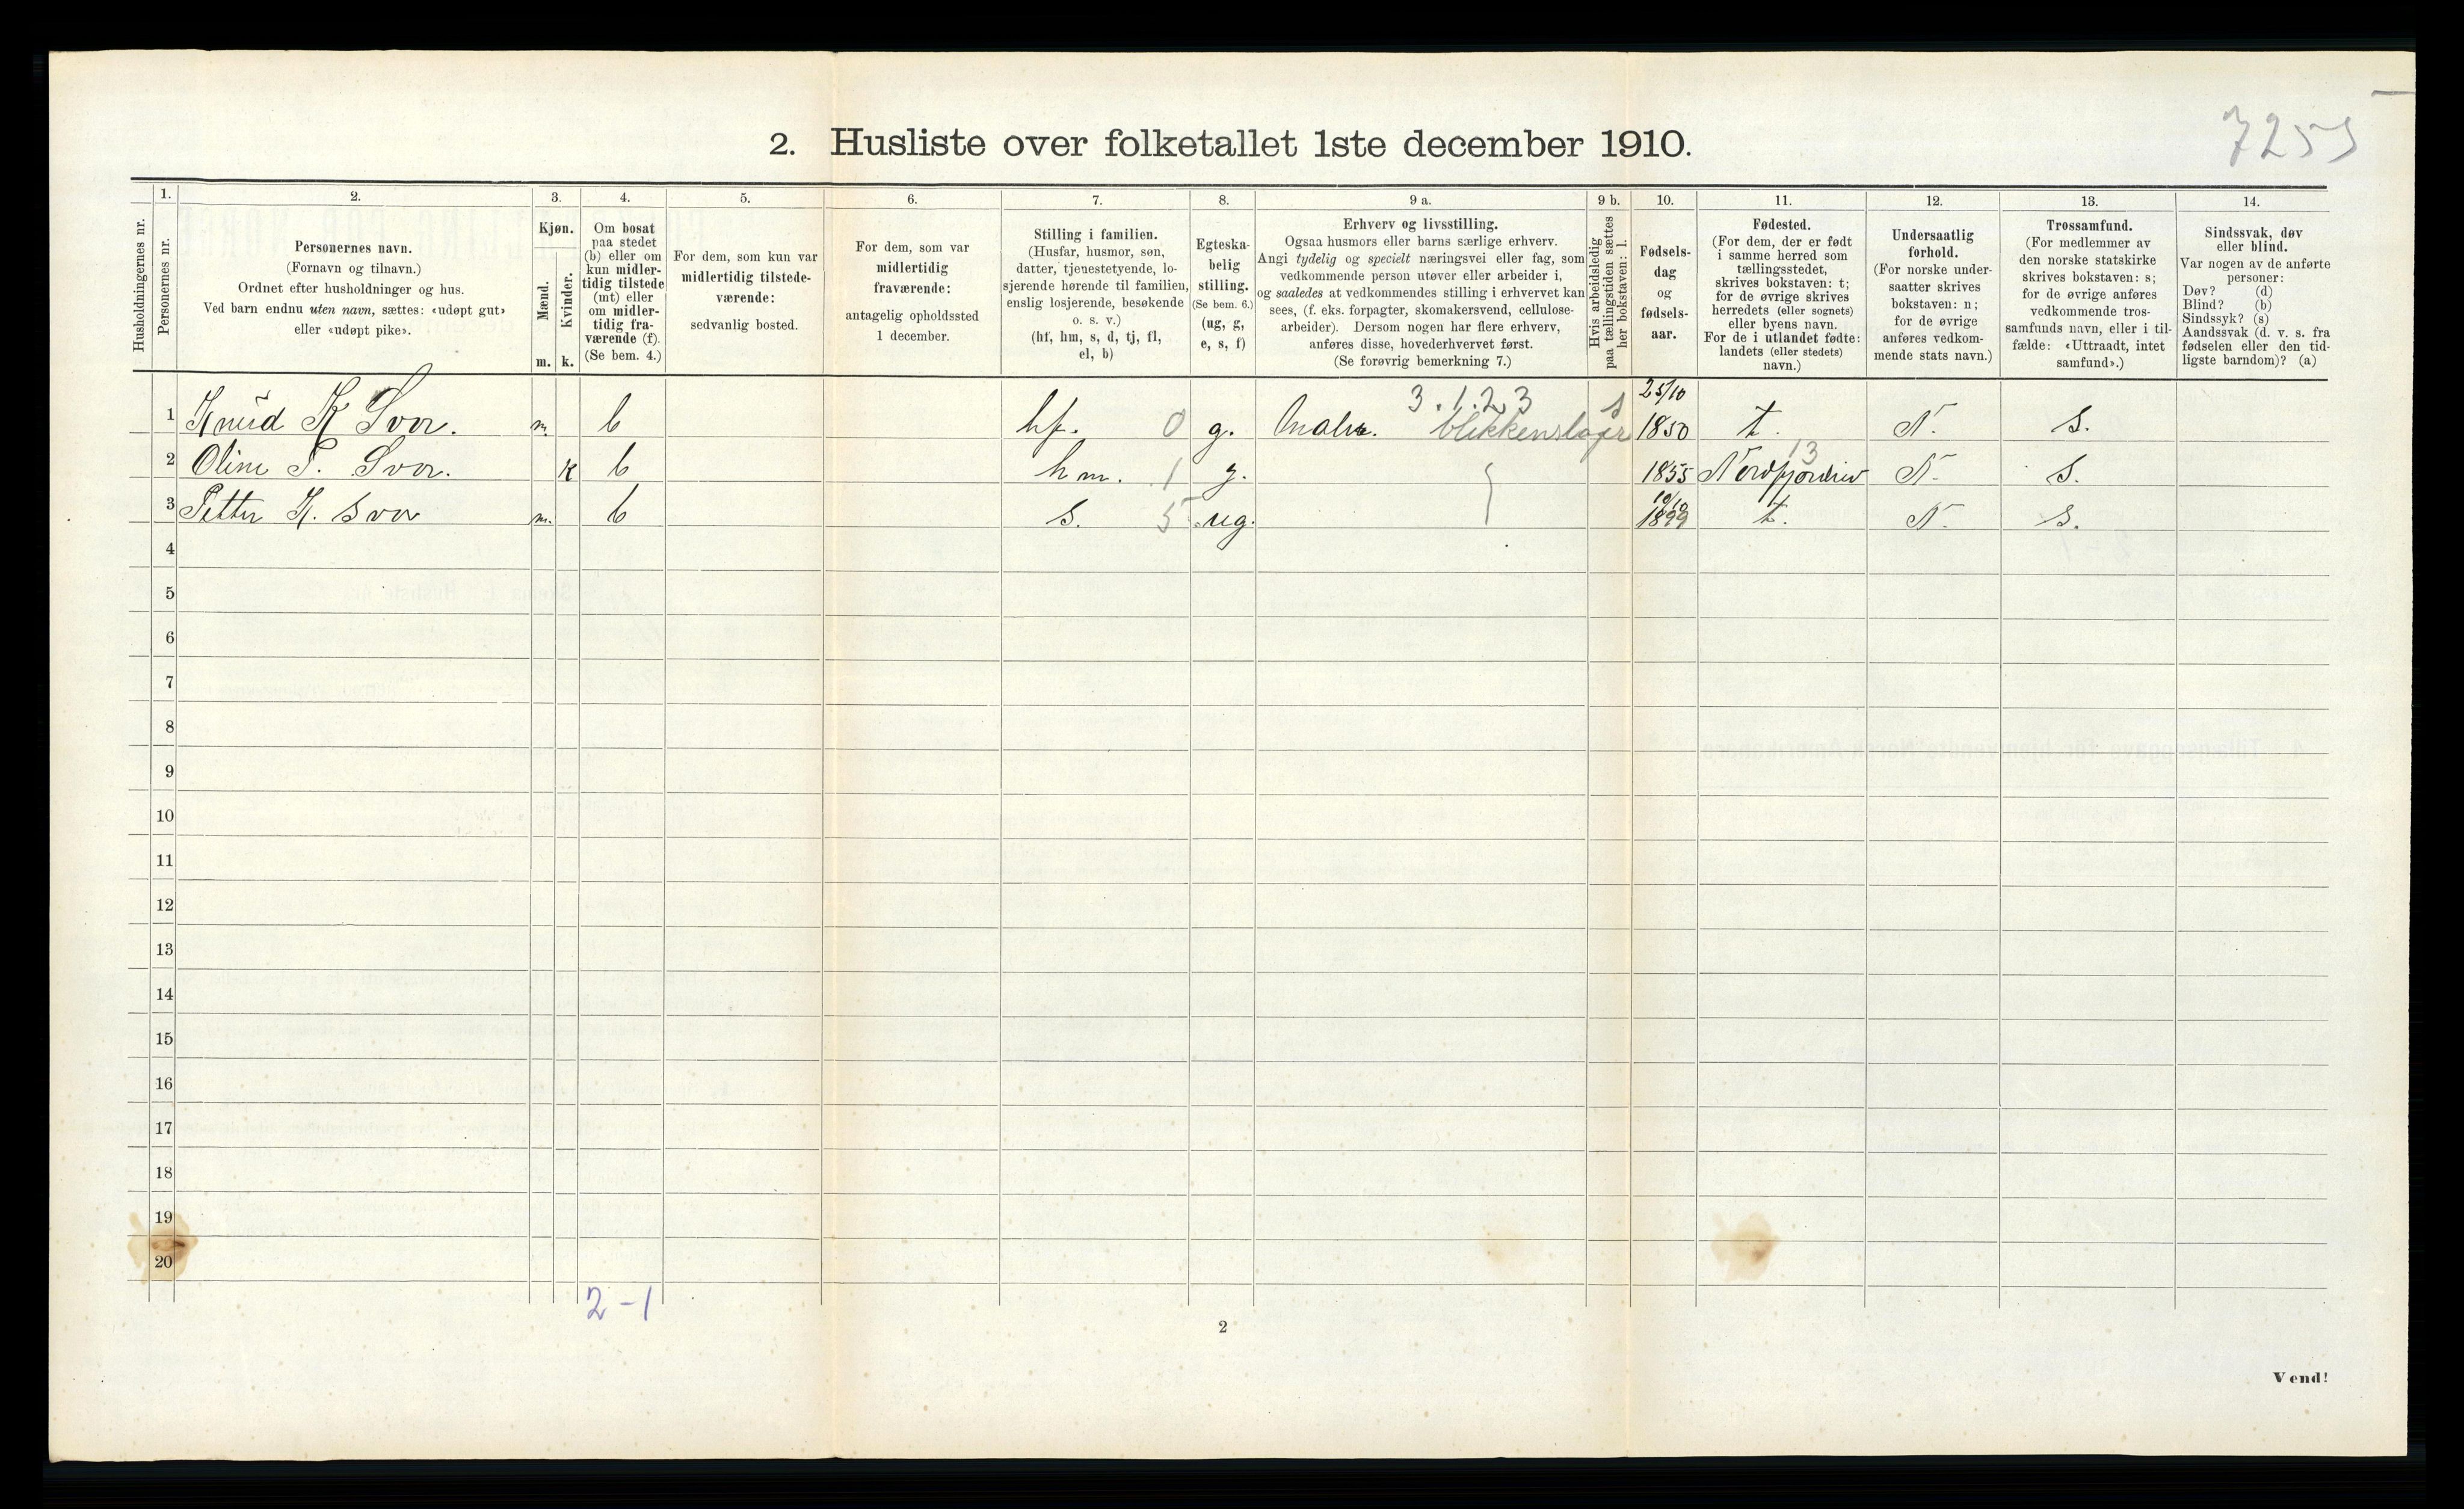 7255
2. Husliste over folketallet 1ste december 1910.
Husholdningernes nr.
1.
Personernes nr.
2.
Personernes navn.
(Fornavn og tilnavn.)
Ordnet efter husholdninger og hus.
Ved barn endnu uten navn, sættes: «udøpt gut»
eller «udøpt pike».
3.
Kjøn.
Mænd.
m.
Kvinder.
k.
4.
Om bosat
paa stedet
(b) eller om
kun midler-
tidig tilstede
(mt) eller
om midler-
tidig fra-
værende (f).
(Se bem. 4.)
5.
For dem, som kun var
midlertidig tilstede-
værende:
sedvanlig bosted.
6.
For dem, som var
midlertidig
fraværende:
antagelig opholdssted
1 december.
7.
Stilling i familien.
(Husfar, husmor, søn,
datter, tjenestetyende, lo-
sjerende hørende til familien,
enslig losjerende, besøkende
o. s. v.)
(hf, hm, s, d, tj, fl,
el, b)
8.
Egteska-
belig
stilling.
(Se bem. 6.)
(ug, g,
e, s, f)
9 a.
Erhverv og livsstilling.
Ogsaa husmors eller barns særlige erhverv.
Angi tydelig og specielt næringsvei eller fag, som
vedkommende person utøver eller arbeider i,
og saaledes at vedkommendes stilling i erhvervet kan
sees, (f. eks. forpagter, skomakersvend, cellulose-
arbeider). Dersom nogen har flere erhverv,
anføres disse, hovederhvervet først.
(Se forøvrig bemerkning 7.)
9 b.
Hvis arbeidsledig
paa tællingstiden sættes
her bokstaven: l.
10.
Fødsels-
dag
og
fødsels-
aar.
11.
Fødested.
(For dem, der er født
i samme herred som
tællingsstedet,
skrives bokstaven: t;
for de øvrige skrives
herredets (eller sognets)
eller byens navn.
For de i utlandet fødte:
landets (eller stedets)
navn.)
12.
Undersaatlig
forhold.
(For norske under-
saatter skrives
bokstaven: n;
for de øvrige
anføres vedkom-
mende stats navn.)
13.
Trossamfund.
(For medlemmer av
den norske statskirke
skrives bokstaven: s;
for de øvrige anføres
vedkommende tros-
samfunds navn, eller i til-
fælde: «Uttraadt, intet
samfund».)
14.
Sindssvak, døv
eller blind.
Var nogen av de anførte
personer:
Døv? (d)
Blind? (b)
Sindssyk? (s)
Aandssvak (d. v. s. fra
fødselen eller den tid-
ligste barndom)? (a)
3.1.2.3 s 25/10
1 Knud K Svor. m. b hf. 0 g. blikkenslager 1850 t. N. S.
13
2 Oline P. Svor. k b hm. 1 g. 1855 N. S.
10/10
3 Petter K. Svor m. b s. 5 ug. 1899 t. N. S.
4
5
6
7
8
9
10
11
12
13
14
15
16
17
18
19
20
2-1
2
Vend!